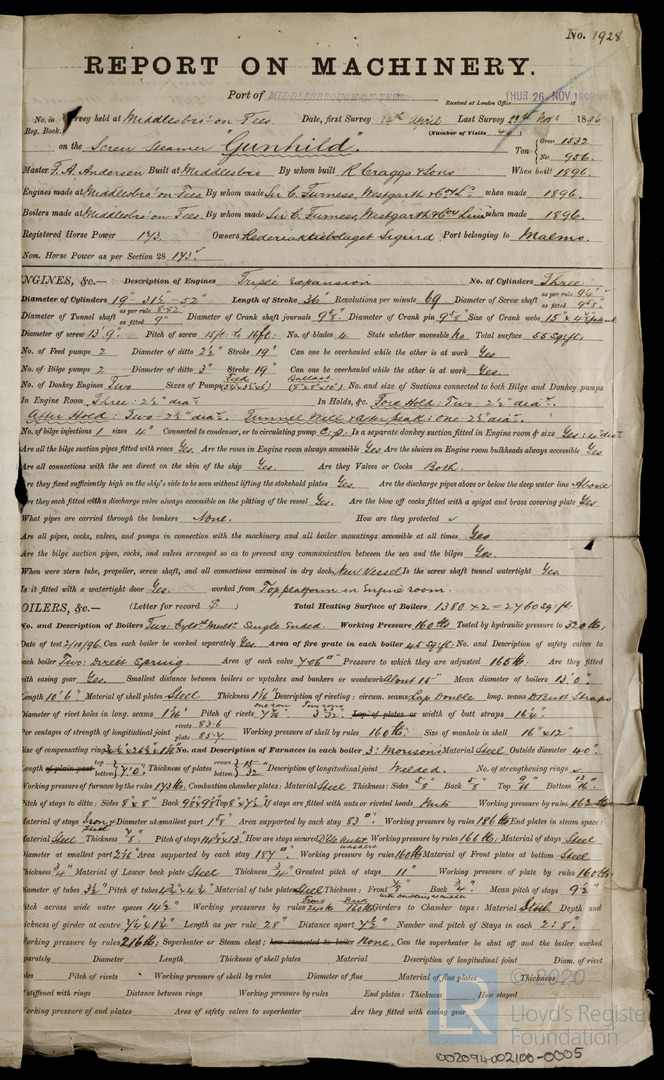 No. 1928
REPORT ON MACHINERY.
Port of MIDDLESBROUGH-ON-TEES
Received at London Office THUR 26 NOV 18
No. in Survey held at Middlesbro'-on-Tees. Date, first Survey 14th April Last Survey Novr 1896
Reg. Book. (Number of Visits
on the Screw Steamer "Gunhild". Tons Gross 1532
Net 956.
Master F. A. Andersen Built at Middlesbro By whom built R Craggs & Sons When built 1896.
Engines made at Middlesbro'-on-Tees By whom made Sir C. Furness, Westgarth & Co Ld when made 1896.
Boilers made at Middlesbro'-on-Tees. By whom made Sir C. Furness, Westgarth & Coy Limd when made 1896.
Registered Horse Power 173. Owners Rederiaktiebolaget Sigurd Port belonging to Malmo.
Nom. Horse Power as per Section 28 173
NGINES, &c.— Description of Engines Triple Expansion No. of Cylinders Three
Diameter of Cylinders 19"-31½"-52" Length of Stroke 36" Revolutions per minute 69 Diameter of Screw shaft as per rule as fitted
Diameter of Tunnel shaft as per rule 8.82 as fitted 9" Diameter of Crank shaft journals 9⅝" Diameter of Crank pin 9⅝" Size of Crank webs
Diameter of screw 13'.9" Pitch of screw 15ft. to 16ft. No. of blades 4 State whether moveable No Total surface 55 sq. ft.
No. of Feed pumps 2 Diameter of ditto 2½" Stroke 19" Can one be overhauled while the other is at work Yes
No. of Bilge pumps 2 Diameter of ditto 3" Stroke 19" Can one be overhauled while the other is at work Yes.
No. of Donkey Engines Two Sizes of Pumps Feed Ballast No. and size of Suctions connected to both Bilge and Donkey pumps
In Engine Room Three: 2½" diar In Holds, &c. Fore Hold: Two - 2½" diar.
After Hold: Two - 2½" diar. Tunnel Well & after peak: One - 2½" diar.
No. of bilge injections 1 sizes 4" Connected to condenser, or to circulating pump C.p. Is a separate donkey suction fitted in Engine room & size Yes: 4" diar
Are all the bilge suction pipes fitted with roses Yes. Are the roses in Engine room always accessible Yes Are the sluices on Engine room bulkheads always accessible Yes
Are all connections with the sea direct on the skin of the ship Yes. Are they Valves or Cocks Both.
Are they fixed sufficiently high on the ship's side to be seen without lifting the stokehold plates Yes. Are the discharge pipes above or below the deep water line Above
Are they each fitted with a discharge valve always accessible on the plating of the vessel Yes. Are the blow off cocks fitted with a spigot and brass covering plate Yes
What pipes are carried through the bunkers None. How are they protected ✓
Are all pipes, cocks, valves, and pumps in connection with the machinery and all boiler mountings accessible at all times Yes
Are the bilge suction pipes, cocks, and valves arranged so as to prevent any communication between the sea and the bilges Yes.
When were stern tube, propeller, screw shaft, and all connections examined in dry dock New Vessel Is the screw shaft tunnel watertight Yes
Is it fitted with a watertight door Yes. worked from Top platform in Engine room.
OILERS, &c.— (Letter for record S) Total Heating Surface of Boilers 1380 x 2 = 2760 sq. ft.
No. and Description of Boilers Two: Cyld Mult. Single Ended. Working Pressure 160 lbs Tested by hydraulic pressure to 320 lbs.
Date of test 2/10/96. Can each boiler be worked separately Yes Area of fire grate in each boiler 45 sq. ft. No. and Description of safety valves to
each boiler Two: Direct Spring. Area of each valve 7.06" Pressure to which they are adjusted 165 lb. Are they fitted
with easing gear Yes. Smallest distance between boilers or uptakes and bunkers or woodwork About 15" Mean diameter of boilers 13'.0"
Length 10'.6" Material of shell plates Steel Thickness Description of riveting: circum. seams Lap Double long. seams D Butt Straps
Diameter of rivet holes in long. seams Pitch of rivets Lap of plates or width of butt straps 16¼"
Per centages of strength of longitudinal joint rivets 83.6 plate 85.7 Working pressure of shell by rules 160 lb. Size of manhole in shell 16" x 12"
Size of compensating ring No. and Description of Furnaces in each boiler 3: Morison's Material Steel Outside diameter 40"
Length of plain part top bottom 7'.0" Thickness of plates crown bottom Description of longitudinal joint Welded. No. of strengthening rings ✓
Working pressure of furnace by the rules 173 lbs. Combustion chamber plates: Material Steel Thickness: Sides ⅝" Back ⅝" Top 9/16" Bottom 13/16"
Pitch of stays to ditto: Sides 8" x 8" Back Top If stays are fitted with nuts or riveted heads Nuts Working pressure by rules
Material of stays Diameter at smallest part Area supported by each stay 83". Working pressure by rules 186 lb End plates in steam space:
Material Steel Thickness ⅞" Pitch of stays How are stays secured Working pressure by rules 166 lb. Material of stays Steel
Diameter at smallest part Area supported by each stay 187". Working pressure by rules 160 lb Material of Front plates at bottom Steel
Thickness ¾" Material of Lower back plate Steel Thickness ¾" Greatest pitch of stays 11" Working pressure of plate by rules 160 lb.
Diameter of tubes 3½" Pitch of tubes Material of tube plates Steel Thickness: Front ⅞" Back ¾". Mean pitch of stays 9½"
Pitch across wide water spaces 14½" Working pressures by rules Front Back 160 lb Girders to Chamber tops: Material Steel Depth and
thickness of girder at centre Length as per rule 28" Distance apart 7½" Number and pitch of Stays in each 2: 8"
Working pressure by rules 216 lb; Superheater or Steam chest; how connected to boiler None. Can the superheater be shut off and the boiler worked
parately Diameter Length Thickness of shell plates Material Description of longitudinal joint Diam. of rivet
oles Pitch of rivets Working pressure of shell by rules Diameter of flue Material of flue plates Thickness
stiffened with rings Distance between rings Working pressure by rules End plates: Thickness How stayed
Working pressure of end plates Area of safety valves to superheater Are they fitted with easing gear
© 2020
LR
Lloyd's Register
Foundation
002094-002100-0005